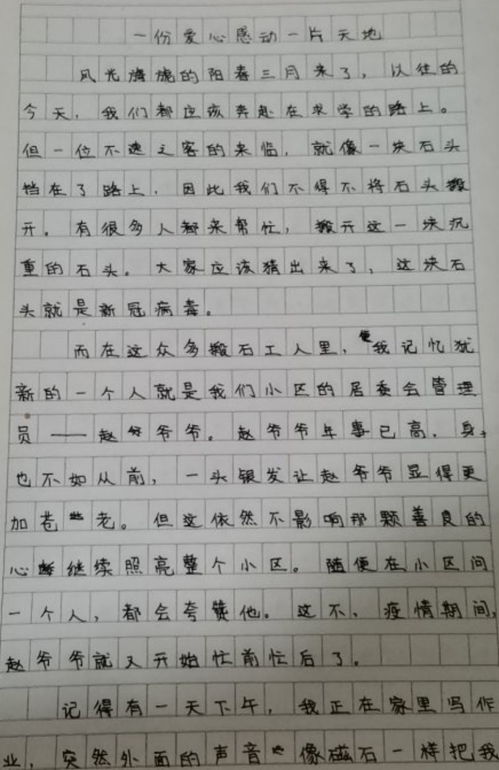 一份爱心感动一片天地
风光旖旎的阳春三月来了，以往的
今天，我们都应该奔赴在求学的路上。
但一位不速之客的来临，就像一块石头
挡在了路上，因此我们不得不将石头搬
开。有很多人都来帮忙，搬开这一块沉
重的石头。大家应该猜出来了，这块石
头就是新冠病毒。
而在这众多搬石工人里，使我记忆犹
新的一个人就是我们小区的居委会管理
员——赵爷爷。赵爷爷年事已高，身
也不如从前，一头银发让赵爷爷显得更
加苍老。但这依然不影响那颗善良的
心继续照亮整个小区。随便在小区问
一个人，都会夸赞他。这不，疫情期间，
赵爷爷就又开始忙前忙后了。
记得有一天下午，我正在家里写作
业，突然外面的声音像磁石一样把我